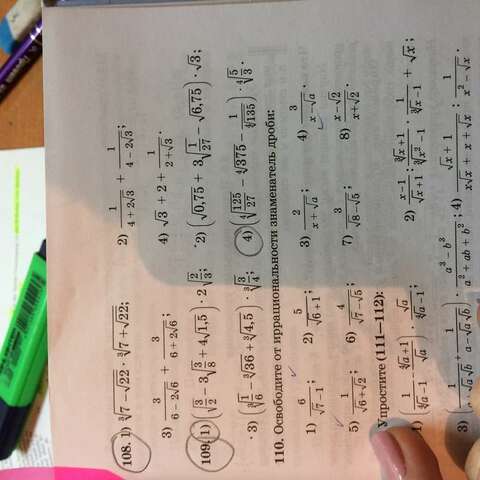 108. 1) ∛(7 − √22) · ∛(7 + √22); 2) 1/(4 + 2√3) + 1/(4 − 2√3);
3) 3/(6 − 2√6) + 3/(6 + 2√6); 4) √3 + 2 + 1/(2 + √3).
109. 1) (√(3/2) − 3√(3/8) + 4√1,5) · 2√(2/3); 2) (√0,75 + 3√(1/27) − √6,75) · √3;
3) (∛(1/6) − ∛36 + ∛4,5) · ∛(3/4); 4) (∜(125/27) − ∜375 − 1/∜135) · ∜(5/3).
110. Освободите от иррациональности знаменатель дроби:
1) 6/(√7 − 1); 2) 5/(√6 + 1); 3) 2/(x + √a); 4) 3/(x − √a).
5) 1/(√6 + √2); 6) 4/(√7 − √5); 7) 3/(√8 − √5); 8) (x − √2)/(x + √2).
Упростите (111—112):
1) (1/(∜a − 1) − (∜a + 1)/√a) · √a/(∜a − 1); 2) (x − 1)/(√x + 1) : (∛x + 1)/(∛x² − 1) · 1/(∛x − 1) + √x;
3) (1/(a + √a√b) + 1/(a − √a√b)) · (a³ − b³)/(a² + ab + b²); 4) (√x + 1)/(x√x + x + √x) : 1/(x² − √x).